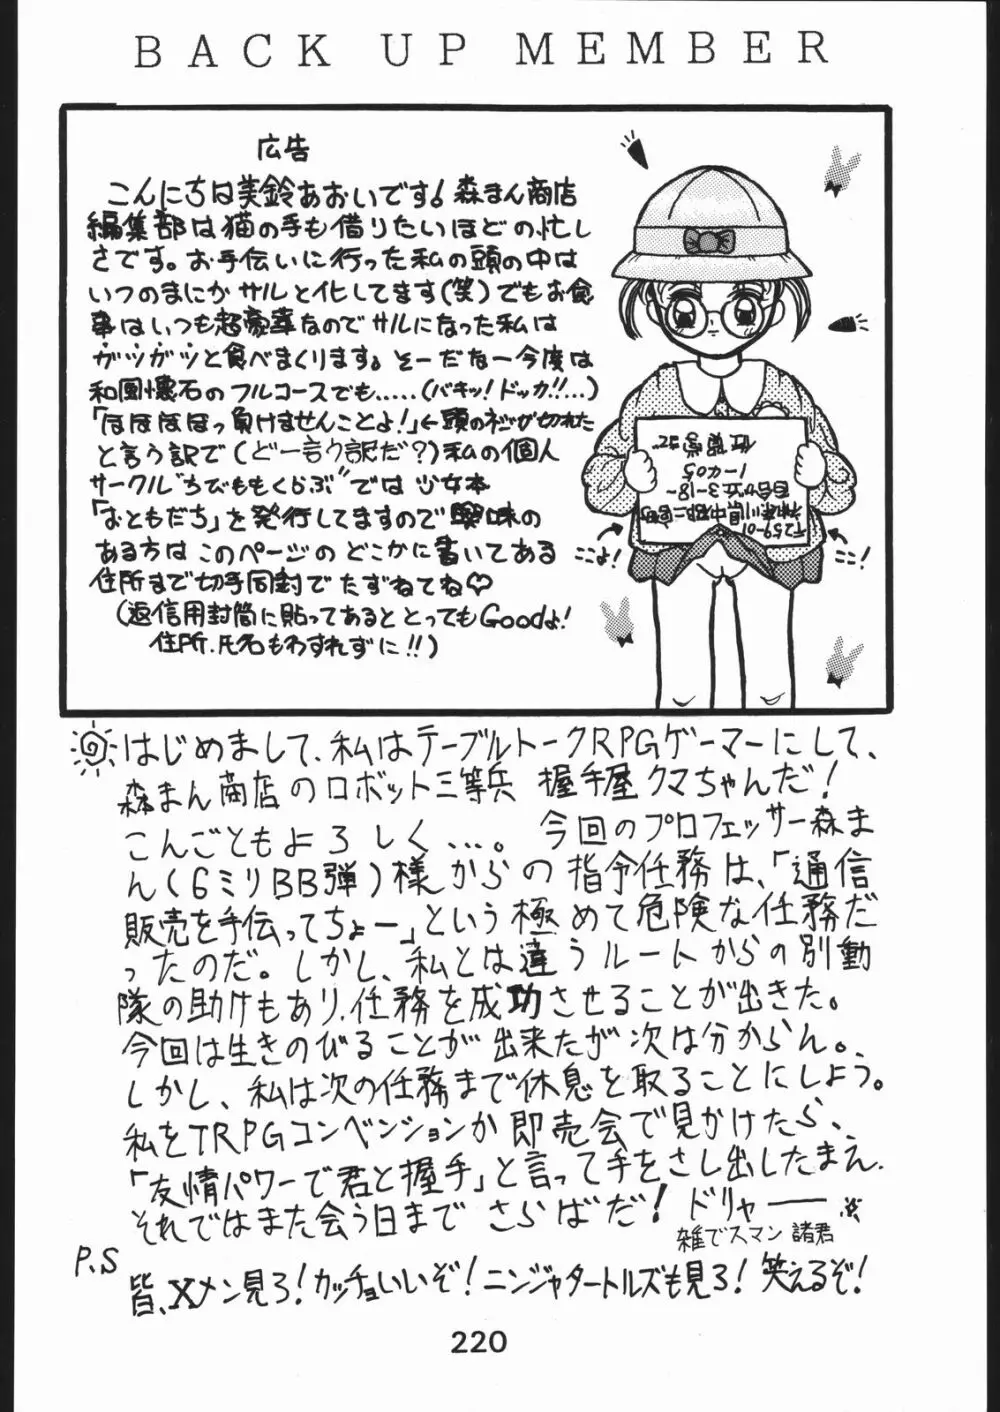 BACK UP MEMBER
広告
こんにちは美鈴あおいです! 森まん商店
編集部は猫の手も借りたいほどの忙し
さです。お手伝いに行った私の頭の中は
いつのまにかサルと化してます(笑)でもお食
事はいつも超豪華なのでサルになった私は
ガツガツと食べまくります。そーだなー今度は
和風懐石のフルコースでも.....(バキッ!ドッカ!!...)
「ほほほほっ負けませんことよ!」←頭のネジが切れた
と言う訳で(どー言う訳だ?)私の個人
サークル"ちびももくらぶ"では少女本
「おともだち」を発行してますので興味の
ある方はこのページのどこかに書いてある
住所まで切手同封でたずねてね♡
(返信用封筒に貼ってあるととってもGoodよ!
住所、氏名もわすれずに!!)
ここよ!
ここ!
はじめまして、私はテーブルトークRPGゲーマーにして、
森まん商店のロボット三等兵 握手屋クマちゃんだ!
こんごともよろしく...。 今回のプロフェッサー森ま
ん(6ミリBB弾)様からの指令任務は、「通信
販売を手伝ってちょー」という極めて危険な任務だ
ったのだ。しかし、私とは違うルートからの別動
隊の助けもあり、任務を成功させることが出きた。
今回は生きのびることが出来たが次は分からん。
しかし、私は次の任務まで休息を取ることにしよう。
私をTRPGコンベンションか即売会で見かけたら、
「友情パワーで君と握手」と言って手をさし出したまえ.
それではまた会う日まで さらばだ! ドリャー
雑でスマン 諸君
P.S
皆、Xメン見ろ!カッチョいいぞ!ニンジャタートルズも見ろ!笑えるぞ!
220